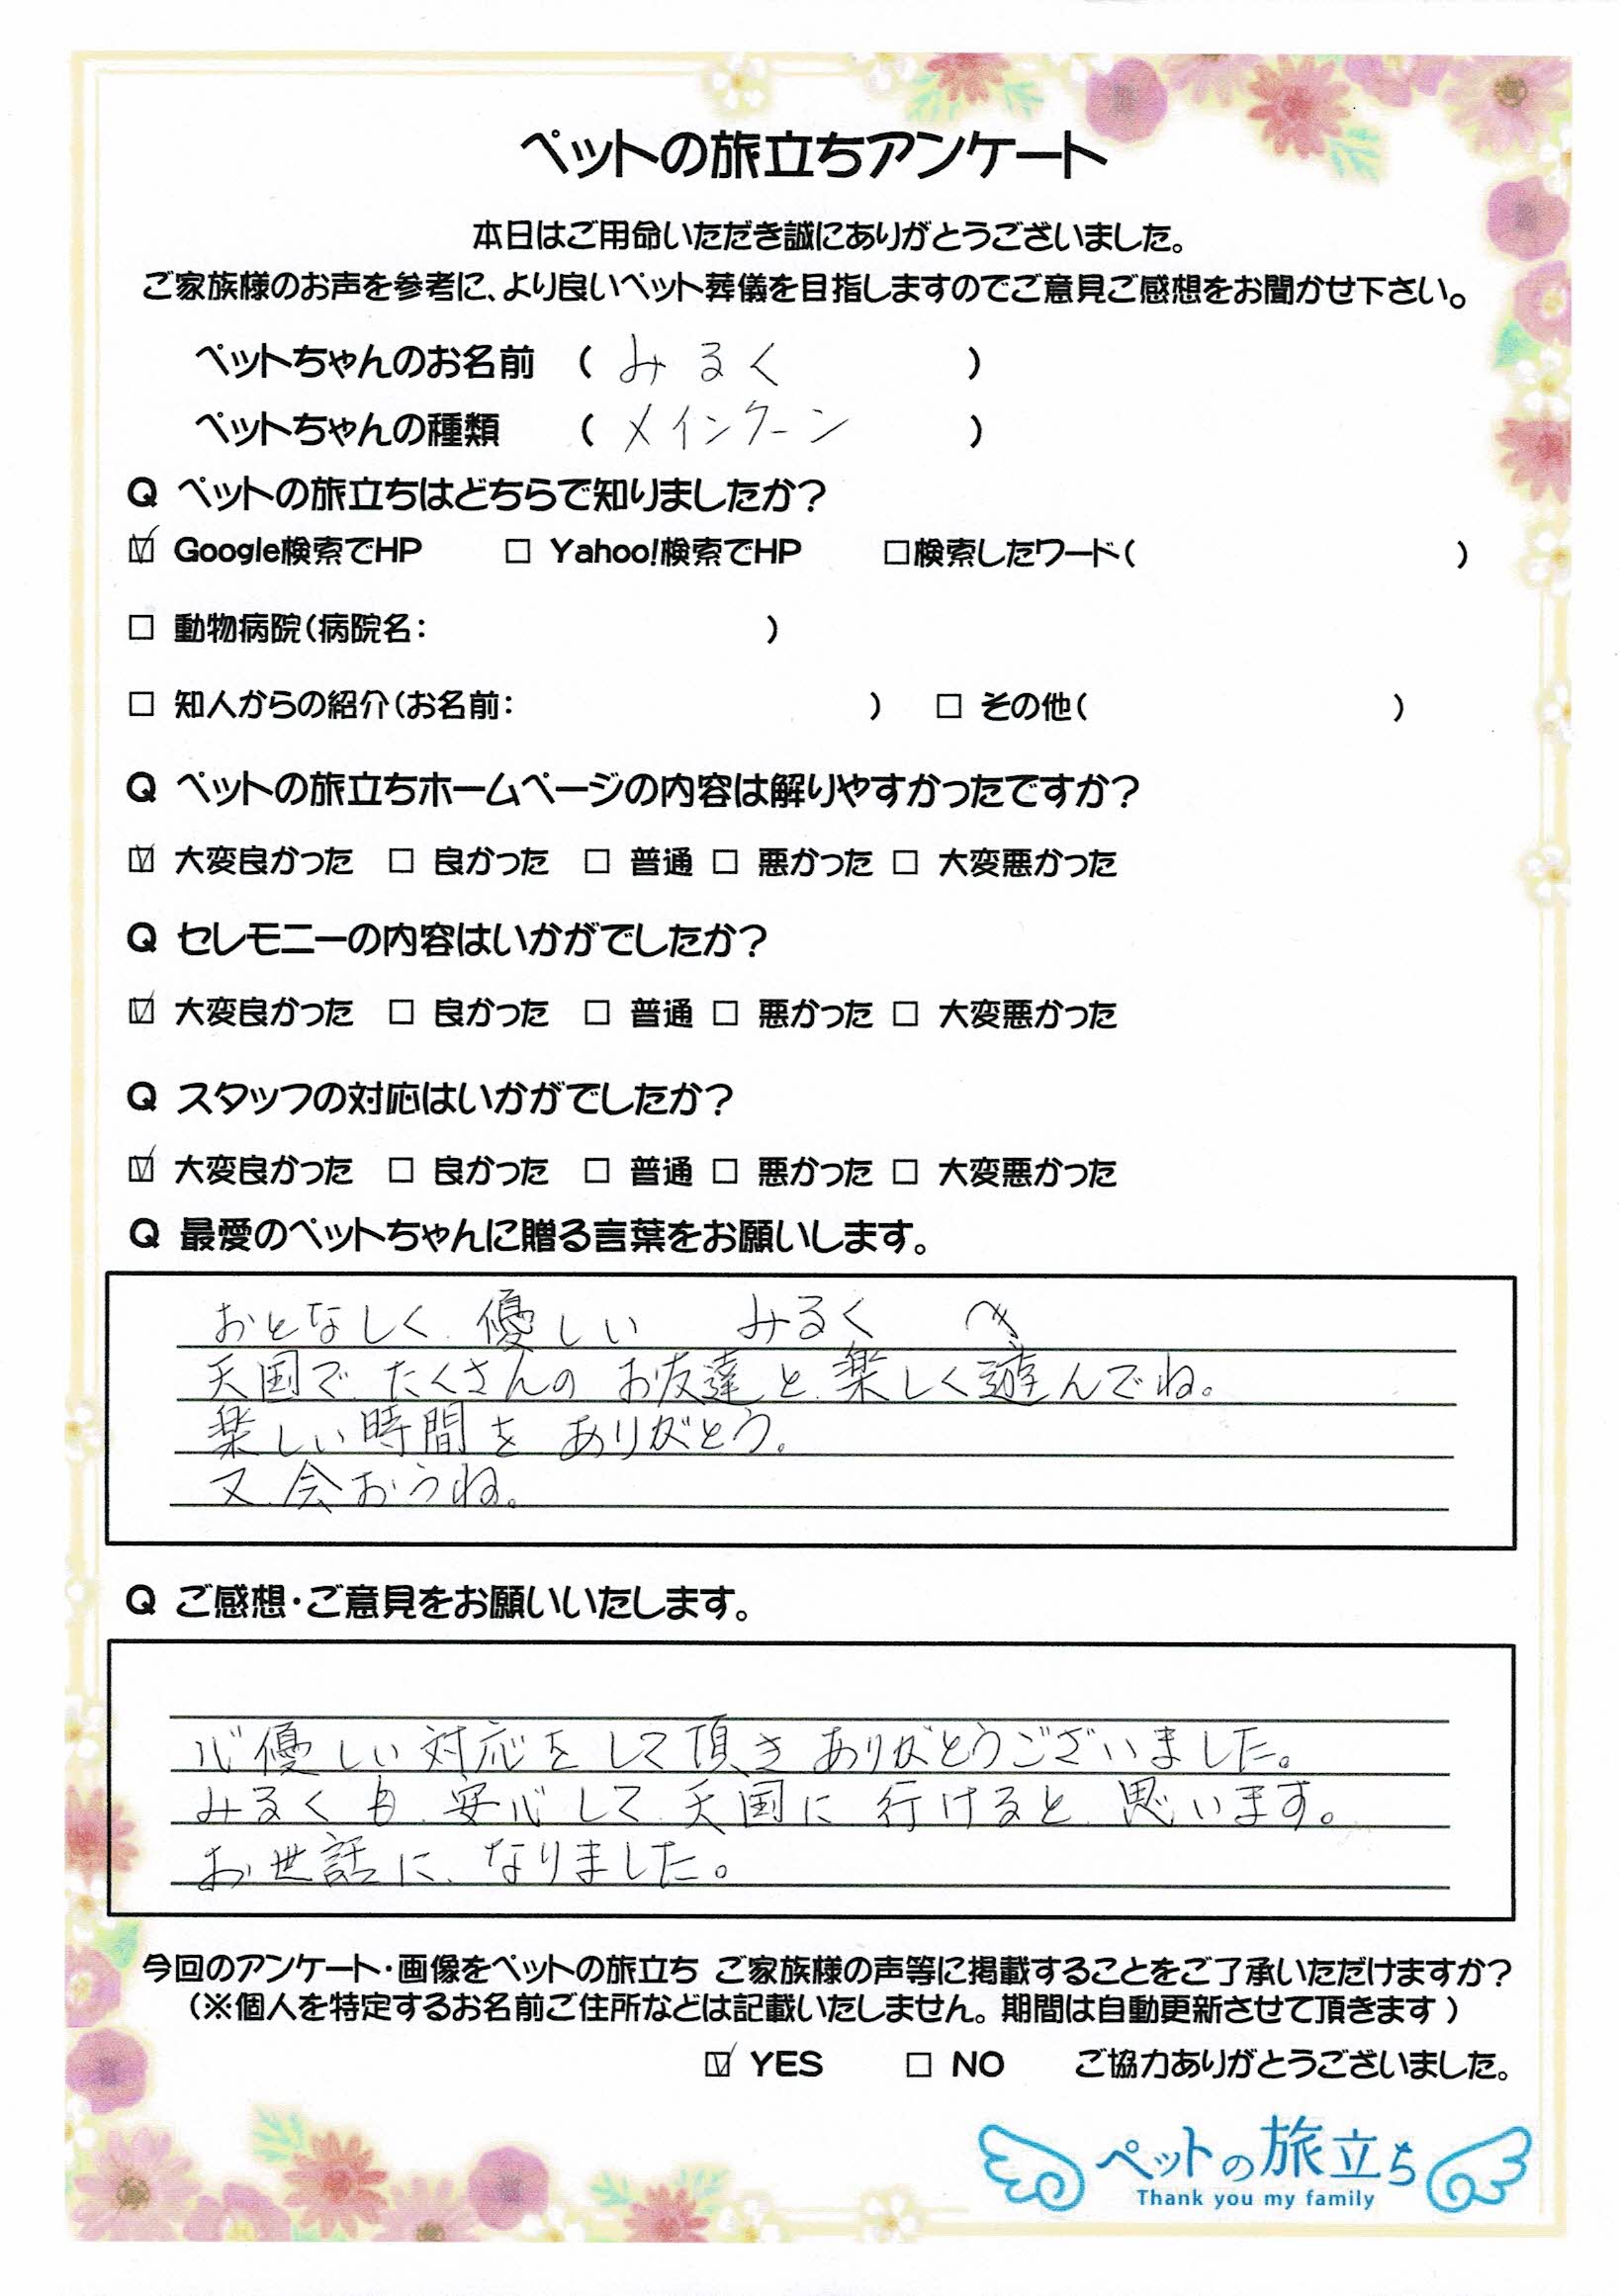 ペットの旅立ちアンケート
本日はご用命いただき誠にありがとうございました。
ご家族様のお声を参考に、より良いペット葬儀を目指しますのでご意見ご感想をお聞かせ下さい。
ペットちゃんのお名前 ( みるく )
ペットちゃんの種類 ( メインクーン )
Q ペットの旅立ちはどちらで知りましたか?
☑ Google検索でHP □ Yahoo!検索でHP □検索したワード( )
□ 動物病院(病院名: )
□ 知人からの紹介(お名前: ) □ その他( )
Q ペットの旅立ちホームページの内容は解りやすかったですか?
☑ 大変良かった □ 良かった □ 普通 □ 悪かった □ 大変悪かった
Q セレモニーの内容はいかがでしたか?
☑ 大変良かった □ 良かった □ 普通 □ 悪かった □ 大変悪かった
Q スタッフの対応はいかがでしたか?
☑ 大変良かった □ 良かった □ 普通 □ 悪かった □ 大変悪かった
Q 最愛のペットちゃんに贈る言葉をお願いします。
おとなしく、優しい みるく へ
天国で、たくさんの お友達と、楽しく遊んでね。
楽しい時間を ありがとう。
又、会おうね。
Q ご感想・ご意見をお願いいたします。
心優しい対応をして頂き ありがとうございました。
みるくも、安心して、天国に 行けると、思います。
お世話に、なりました。
今回のアンケート・画像をペットの旅立ち ご家族様の声等に掲載することをご了承いただけますか?
(※個人を特定するお名前ご住所などは記載いたしません。期間は自動更新させて頂きます)
☑ YES □ NO ご協力ありがとうございました。
ペットの旅立ち
Thank you my family